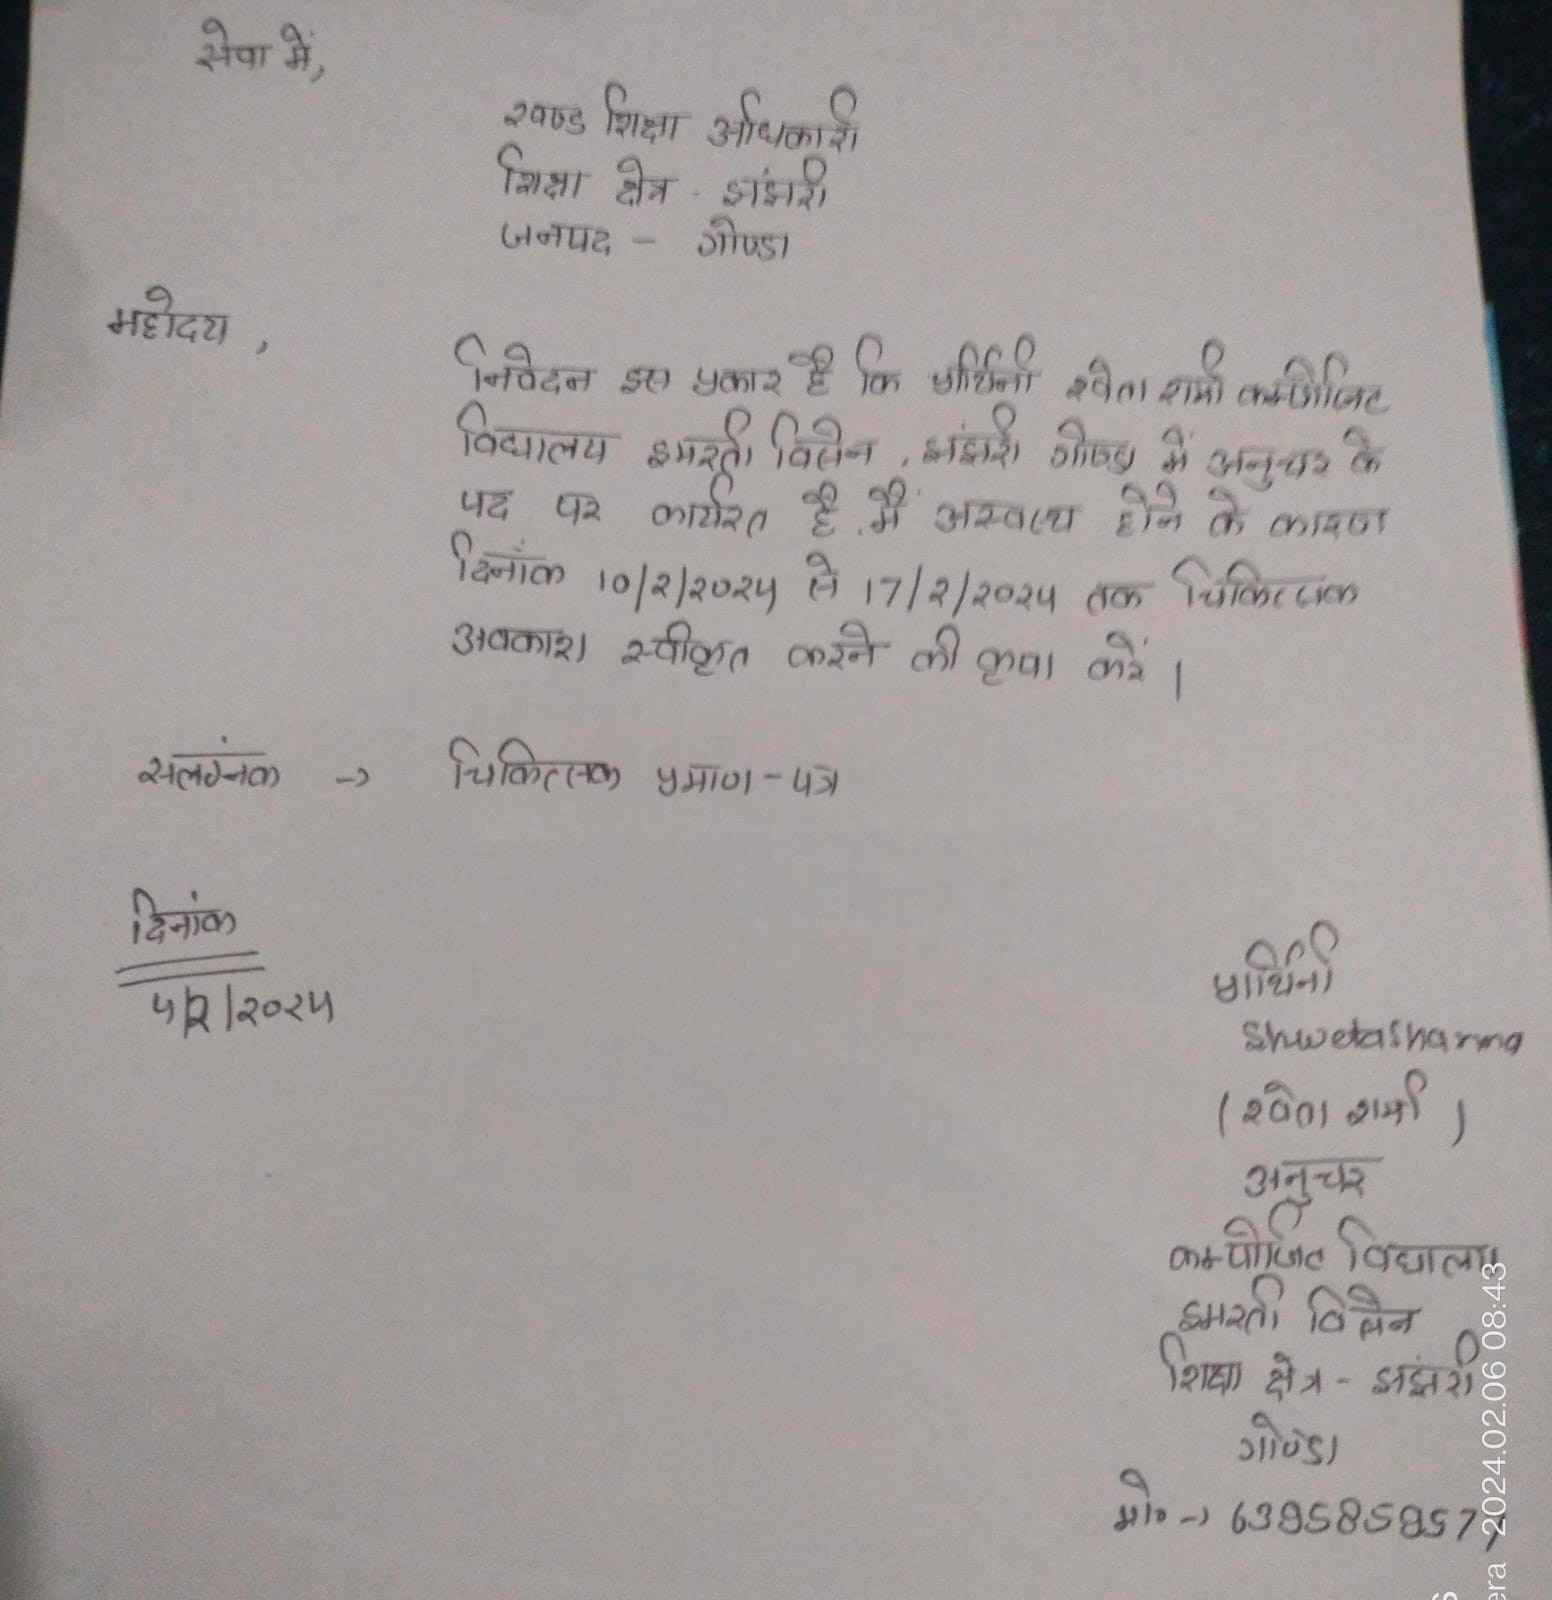 सेवा में,
खण्ड शिक्षा अधिकारी
शिक्षा क्षेत्र - झंझरी
जनपद - गोण्डा
महोदय,
निवेदन इस प्रकार है कि प्रार्थिनी श्वेता शर्मा कम्पोजिट
विद्यालय इमरती विसेन, झंझरी गोण्डा में अनुचर के
पद पर कार्यरत है. मैं अस्वस्थ होने के कारण
दिनाँक 10/2/2024 से 17/2/2024 तक चिकित्सक
अवकाश स्वीकृत करने की कृपा करें।
सलंग्नक → चिकित्सक प्रमाण-पत्र
दिनांक
5/2/2024
प्रार्थिनी
Shweta Sharma
(श्वेता शर्मा)
अनुचर
कम्पोजिट विद्यालय
इमरती विसेन
शिक्षा क्षेत्र - झंझरी
गोण्डा
मो० →
2024.02.06 08:43